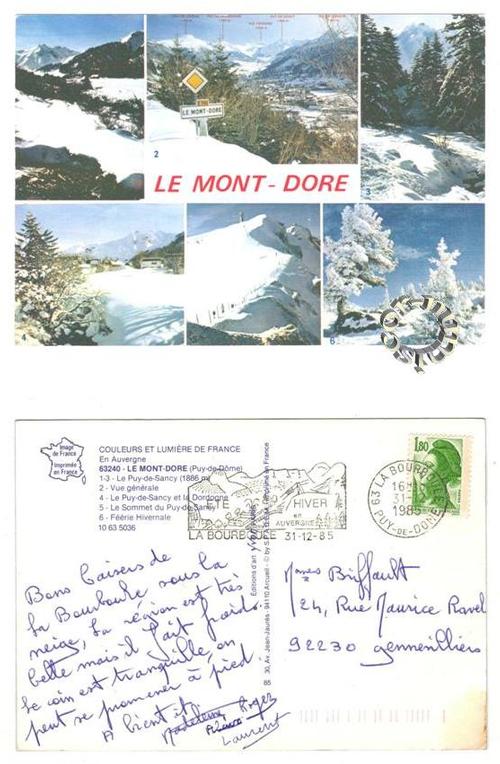 LE MONT-DORE
1
2
LE MONT-DORE
3
4
6
Image
de France
Imprimée
en France
COULEURS ET LUMIÈRE DE FRANCE
En Auvergne
63240 - LE MONT-DORE (Puy-de-Dôme)
1-3 - Le Puy-de-Sancy (1886 m)
2 - Vue générale
4 - Le Puy-de-Sancy et la Dordogne
5 - Le Sommet du Puy-de-Sancy
6 - Féérie Hivernale
10 63 5036
ÉTÉ HIVER
en
AUVERGNE
LA BOURBOULE 31-12-85
63 LA BOURBOULE
16H
31-
1985
PUY-DE-DOME
1,80
Bons baisers de
la Bourboule sous la
neige, la région est très
belle mais il fait froid.
le coin est tranquille, on
peut se promener à pied
A bientôt
Madeleine Roger
Laurent
Mmes Briffault
24, Rue Maurice Ravel
92230 Gennevilliers
85 30, Av. Jean-Jaurès - 94110 Arcueil - © by S.P.A.D.E.M. Imprimé en France
Éditions d'art